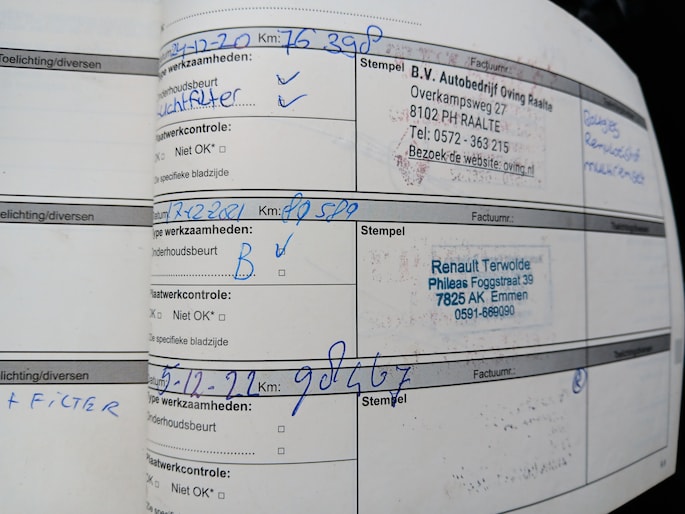 Toelichting/diversen
Datum 24-12-20 Km: 76 398
Factuurnr.:
Type werkzaamheden:
Stempel
Onderhoudsbeurt
Luchtfilter
Plaatwerkcontrole:
OK Niet OK*
De specifieke bladzijde
B.V. Autobedrijf Oving Raalte
Overkampsweg 27
8102 PH RAALTE
Tel: 0572 - 363 215
Bezoek de website: oving.nl
Toelichting/diversen
Datum 17-12 2021 Km: 89 589
Factuurnr.:
Toelichting/diversen
Type werkzaamheden:
Stempel
Onderhoudsbeurt
B
Plaatwerkcontrole:
OK Niet OK*
De specifieke bladzijde
Renault Terwolde
Phileas Foggstraat 39
7825 AK Emmen
0591-669090
Toelichting/diversen
+ FiLTER
Datum 5-12-22 Km: 98467
Factuurnr.:
Toelichting/diversen
Type werkzaamheden:
Stempel
Onderhoudsbeurt
Plaatwerkcontrole:
OK Niet OK*
De specifieke bladzijde